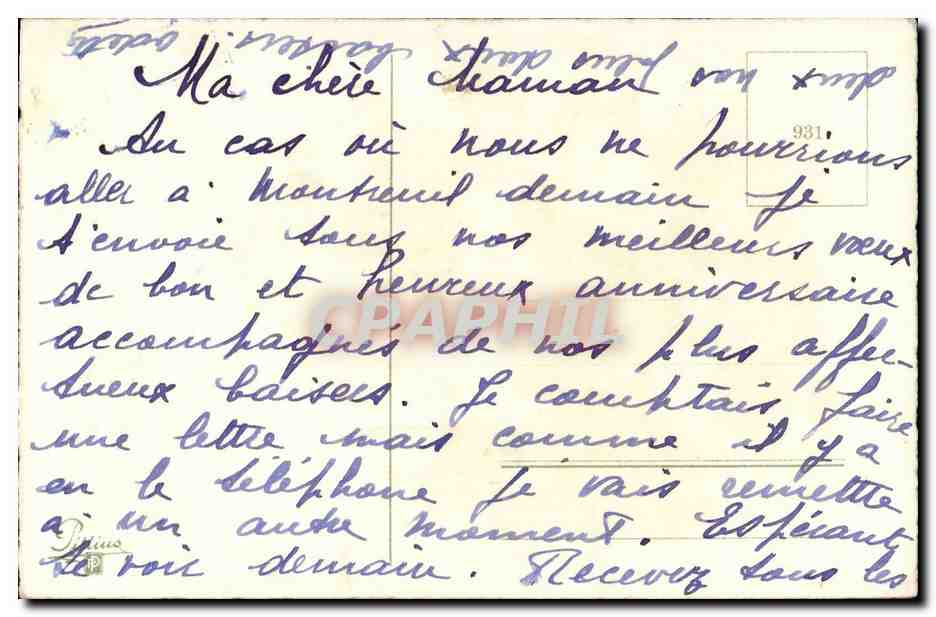 Ma chère Maman
Au cas où nous ne pourrions
aller à Montreuil demain je
t'envoie tous nos meilleurs vœux
de bon et heureux anniversaire
accompagnés de nos plus affec-
tueux baisers. Je comptais faire
une lettre mais comme il y a
eu le téléphone je vais remettre
à un autre moment. Espérant
te voir demain. Recevez tous les
deux nos plus doux
baisers. Odette
931
CPAPHIL